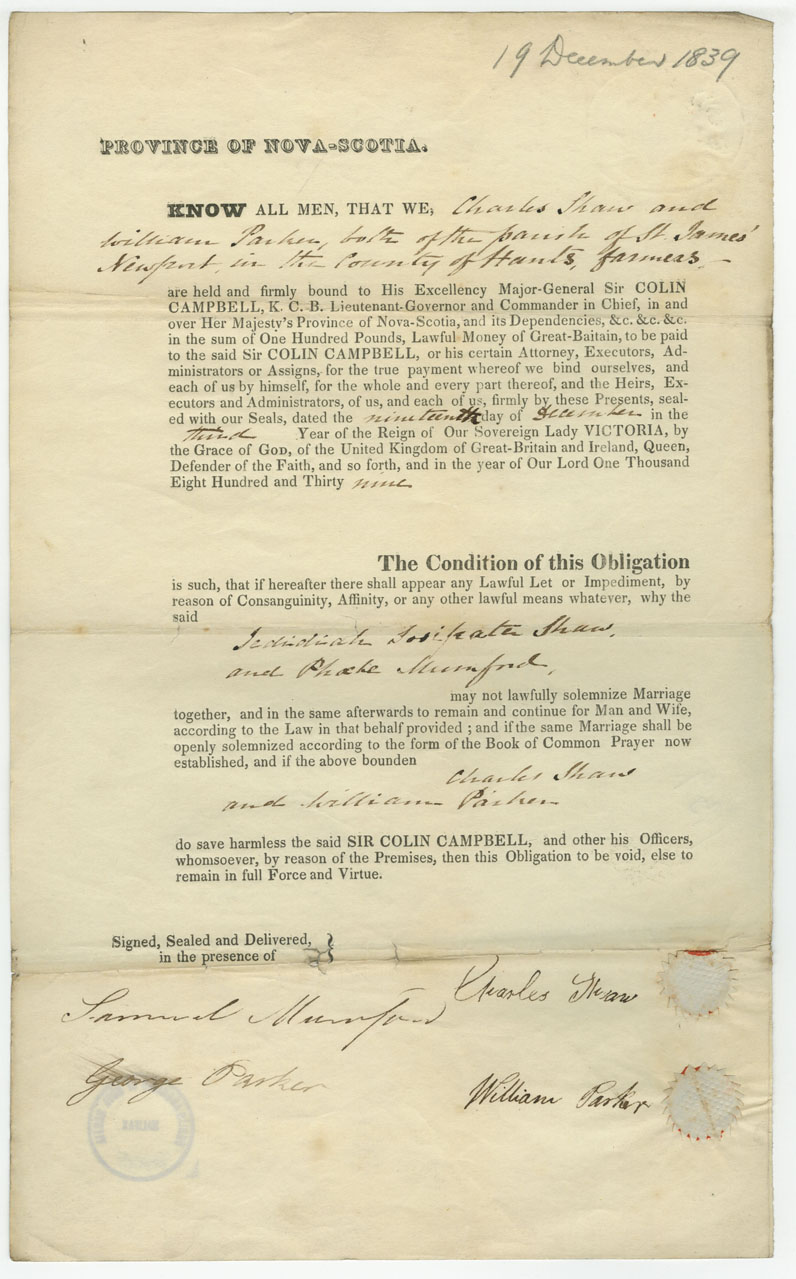 19 December 1839
PROVINCE OF NOVA-SCOTIA.
KNOW ALL MEN, THAT WE, Charles Shaw and
William Parker, both of the parish of St James'
Newport, in the County of Hants, farmers,—
are held and firmly bound to His Excellency Major-General Sir COLIN
CAMPBELL, K. C. B. Lieutenant-Governor and Commander in Chief, in and
over Her Majesty's Province of Nova-Scotia, and its Dependencies, &c. &c. &c.
in the sum of One Hundred Pounds, Lawful Money of Great-Baitain, to be paid
to the said Sir COLIN CAMPBELL, or his certain Attorney, Executors, Ad-
ministrators or Assigns, for the true payment whereof we bind ourselves, and
each of us by himself, for the whole and every part thereof, and the Heirs, Ex-
ecutors and Administrators, of us, and each of us, firmly by these Presents, seal-
ed with our Seals, dated the nineteenth day of December in the
third Year of the Reign of Our Sovereign Lady VICTORIA, by
the Grace of GOD, of the United Kingdom of Great-Britain and Ireland, Queen,
Defender of the Faith, and so forth, and in the year of Our Lord One Thousand
Eight Hundred and Thirty nine
The Condition of this Obligation
is such, that if hereafter there shall appear any Lawful Let or Impediment, by
reason of Consanguinity, Affinity, or any other lawful means whatever, why the
said
Jedidiah Shaw,
and Phœbe Mumford,
may not lawfully solemnize Marriage
together, and in the same afterwards to remain and continue for Man and Wife,
according to the Law in that behalf provided ; and if the same Marriage shall be
openly solemnized according to the form of the Book of Common Prayer now
established, and if the above bounden
Charles Shaw
and William Parker
do save harmless the said SIR COLIN CAMPBELL, and other his Officers,
whomsoever, by reason of the Premises, then this Obligation to be void, else to
remain in full Force and Virtue.
Signed, Sealed and Delivered,
in the presence of
Charles Shaw
Samuel Mumford
George Parker
William Parker